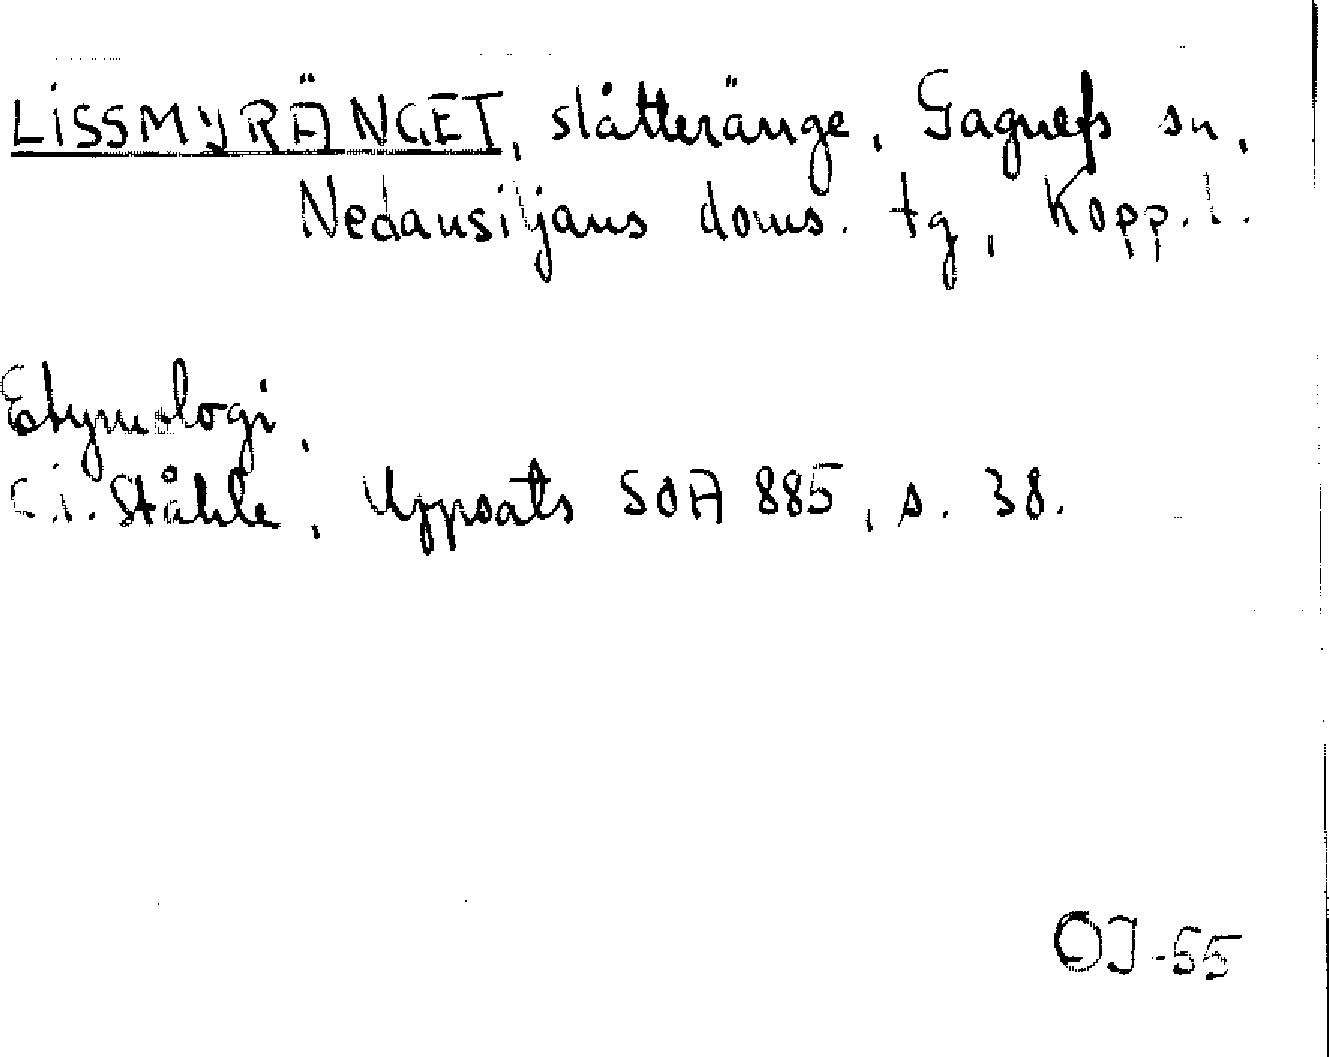 LISSMYRÄNGET, slåtteränge, Gagnefs sn,
Nedansiljans doms. tg, Kopp. l.
Etymologi,
C.I. Ståhle, Uppsats SOA 885, s. 38.
OJ-55